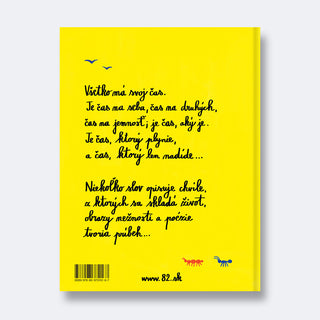 Všetko má svoj čas.
Je čas na seba, čas na druhých,
čas na jemnosť, je čas, aký je..
Je čas, ktorý plynie,
a čas, ktorý len nadíde...
Niekoľko slov opisuje chvíle,
z ktorých sa skladá život,
obrazy nežnosti a poézie
tvoria príbeh...
www.82.sk